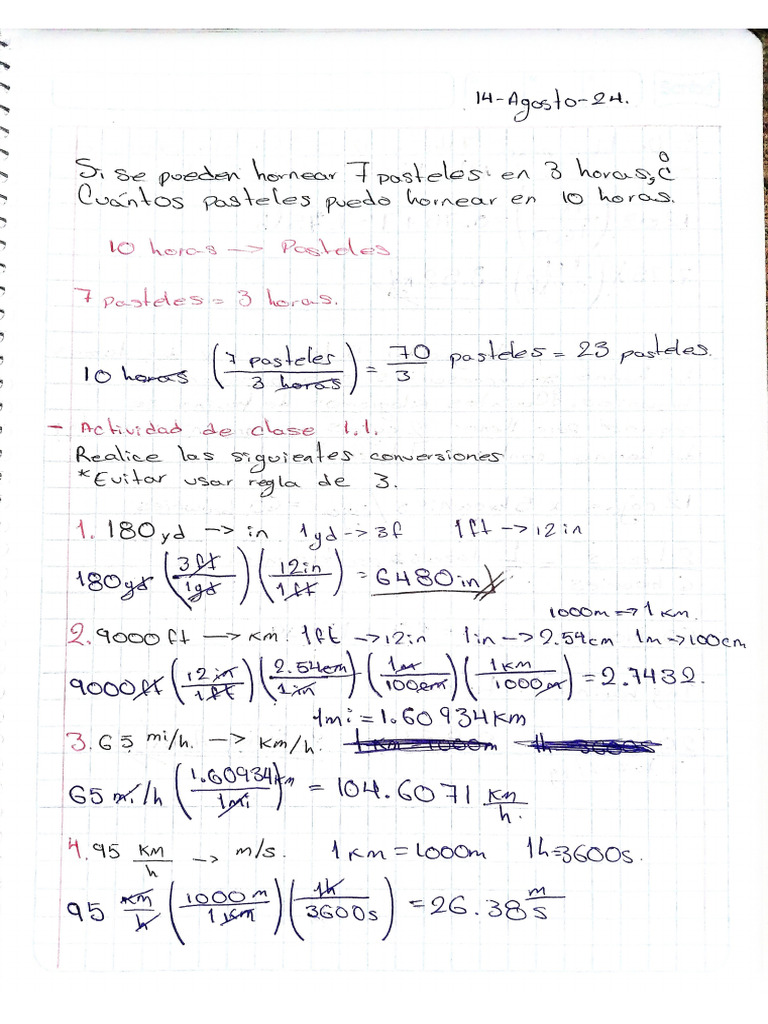 14-Agosto-24.
Si se pueden hornear 7 pasteles en 3 horas, ¿
Cuántos pasteles puedo hornear en 10 horas.
10 horas -> Pasteles
7 pasteles = 3 horas.
10 horas (7 pasteles / 3 horas) = 70/3 pasteles = 23 pasteles.
- Actividad de clase 1.1.
Realice las siguientes conversiones
*Evitar usar regla de 3.
1. 180yd -> in 1yd -> 3f 1ft -> 12in
180yd (3ft / 1yd) (12in / 1ft) = 6480in
1000m => 1 Km.
2. 9000ft -> Km. 1ft -> 12in 1in -> 2.54cm 1m -> 100cm
9000ft (12in / 1ft) (2.54cm / 1in) (1m / 100cm) (1Km / 1000m) = 2.7432.
1mi = 1.60934Km
3. 65 mi/h. -> Km/h.
65 mi/h (1.60934Km / 1mi) = 104.6071 Km/h.
4. 95 Km/h -> m/s. 1Km = 1000m 1h=3600s.
95 Km/h (1000m / 1Km) (1h / 3600s) = 26.38 m/s